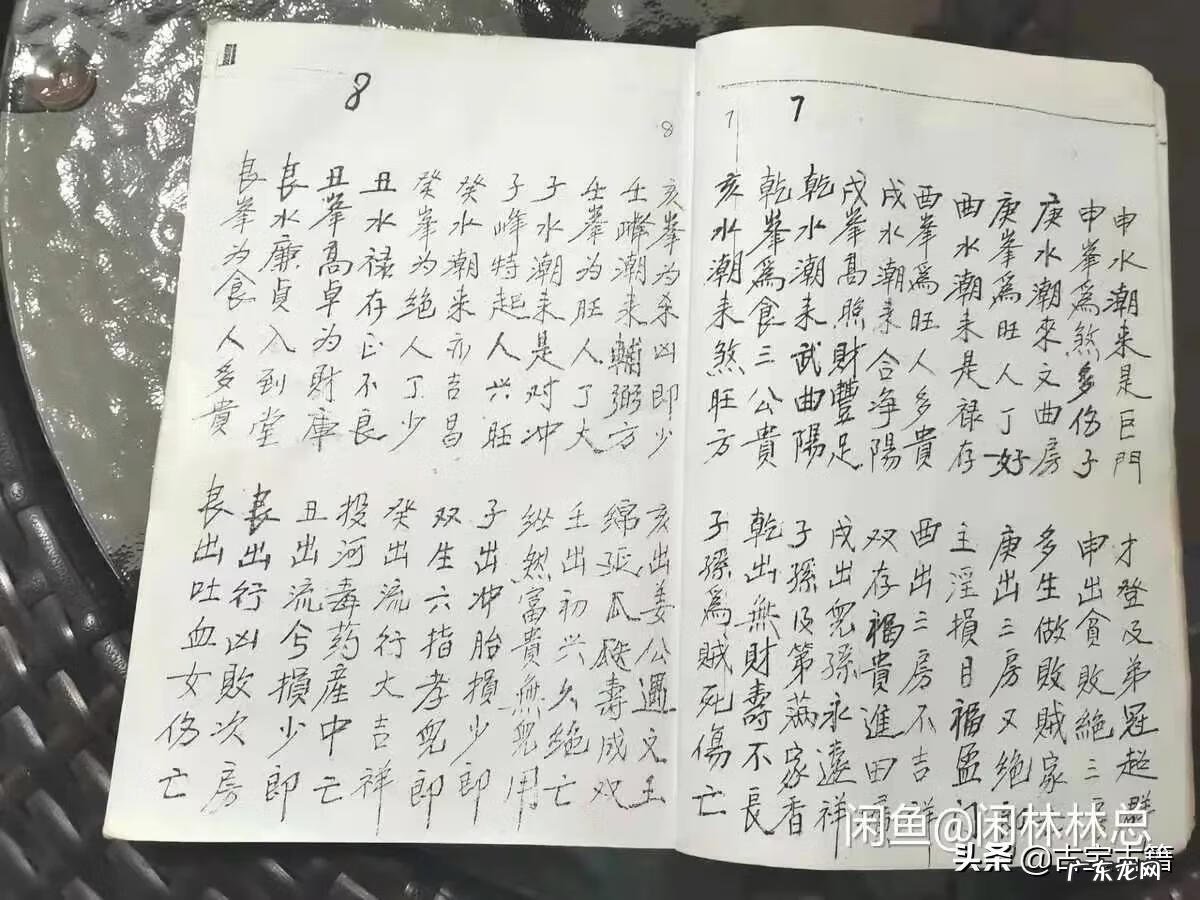 7
7
申水潮来是巨門
才登及弟冠超群
申峯爲煞多伤子
申出貧敗絶三
庚水潮來文曲房
多生做敗賊家
庚峯爲旺人丁好
庚出三房又绝
酉水潮来是禄存
主淫損目福孟门
酉峯爲旺人多貴
酉出三房不吉祥
戌水潮来合净陽
双存福貴進田
戌峯高照財豐足
戌出兒孫永遠祥
乾水潮来武曲陽
子孫及第满家香
乾峯爲食三公貴
乾出無財壽不長
亥水潮来煞旺方
子孫爲賊死傷亡
8
8
亥峯为杀凶即少
亥出姜公遇文王
壬潮来輔弼方
绵延瓜瓞壽成双
壬峯为旺人丁大
壬出初兴久绝亡
子水潮来是对冲
纵然富貴無兒用
子峰特起人兴旺
子出冲胎損少郎
癸水潮来亦吉昌
双生六指孝兒郎
癸峯为绝人丁少
癸出流行大吉祥
丑水禄存正不良
投河毒药産中亡
丑峯高卓为財庫
丑出流兮損少郎
艮水廉貞入到堂
艮出行凶敗次房
艮峯为食人多貴
艮出吐血女伤亡
闲鱼@闲林林总
头条@古字古籍
广东龙网